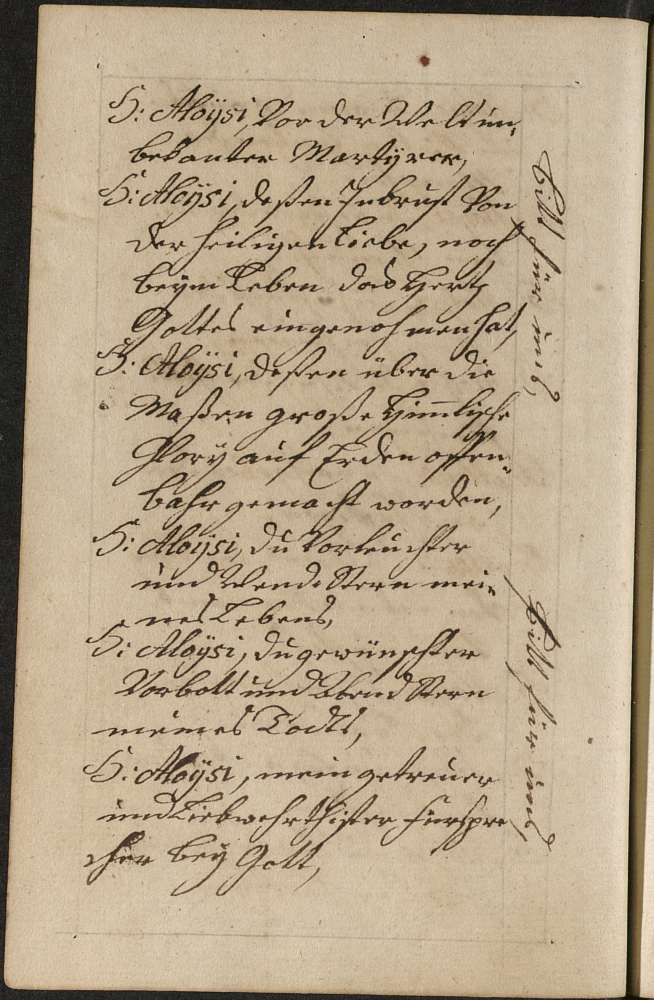 H: Aloÿsi, Vor der Welt un-
bekanter Martÿrer,
H: Aloÿsi, deßen Inbrust Von
der heiligen Liebe, noch
beÿm Leben das Hertz
Gottes eingenohmen hat,
H: Aloÿsi, deßen über die
Maßen große Himlische
Glory auf Erden offen-
bahr gemacht worden,
H: Aloÿsi, du Vorleuchter
und Wende Stern mei-
nes Lebens,
H: Aloÿsi, du gewünschter
Vorbott und Abend Stern
meines Todts,
H: Aloÿsi, mein getreuer
und Liebwehrthister fürspre
cher beÿ Gott,
bitt für uns,
bitt für uns,